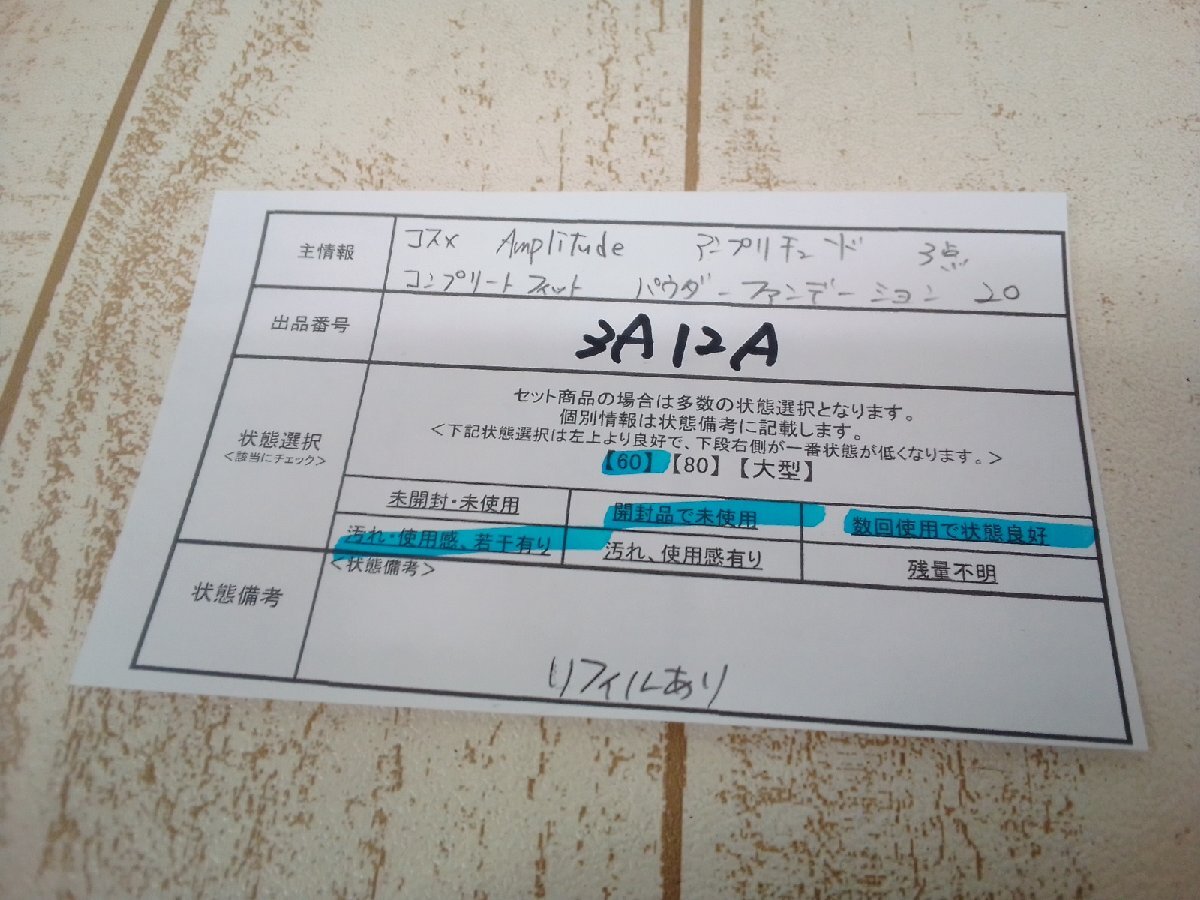 主情報
コスメ Amplitude アンプリチュード 3点
コンプリートフィット パウダーファンデーション 20
出品番号
3A12A
状態選択
<該当にチェック>
セット商品の場合は多数の状態選択となります。
個別情報は状態備考に記載します。
<下記状態選択は左上より良好で、下段右側が一番状態が低くなります。>
【60】【80】【大型】
未開封・未使用 開封品で未使用 数回使用で状態良好
汚れ・使用感、若干有り 汚れ、使用感有り 残量不明
状態備考
<状態備考>
リフィルあり